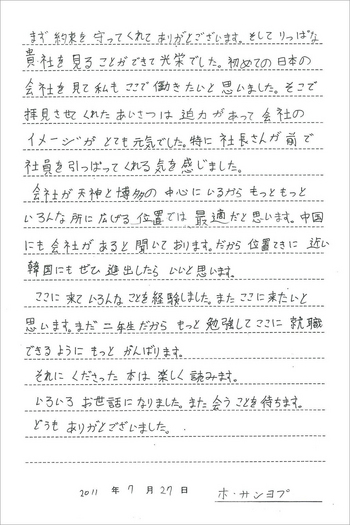 まず 約束を 守ってくれて ありがとございます。そして りっぱな
貴社を 見る ことができて 光栄でした。初めての 日本の
会社を 見て 私も ここで 働きたいと 思いました。そこで
拝見させてくれた あいさつは 迫力があって 会社の
イメージが とても 元気でした。特に 社長さんが 前で
社員を 引っぱって くれる 気を 感じました。
会社が 天神と 博多の 中心に いるから もっと もっと
いろんな 所に 広げる 位置では 最適だと 思います。中国
にも 会社が あると 聞いて おります。だから 位置てきに 近い
韓国にも ぜひ 進出したら いいと 思います。
ここに 来て いろんな ことを 経験しました。また ここに 来たいと
思います。まだ 二年生だから もっと 勉強して ここに 就職
できるように もっと がんばります。
それに くださった 本は 楽しく 読みます。
いろいろ お世話に なりました。また 会う ことを 待ちます。
どうも ありがとございました。
2011 年 7 月 27 日 ホ・サンヨプ